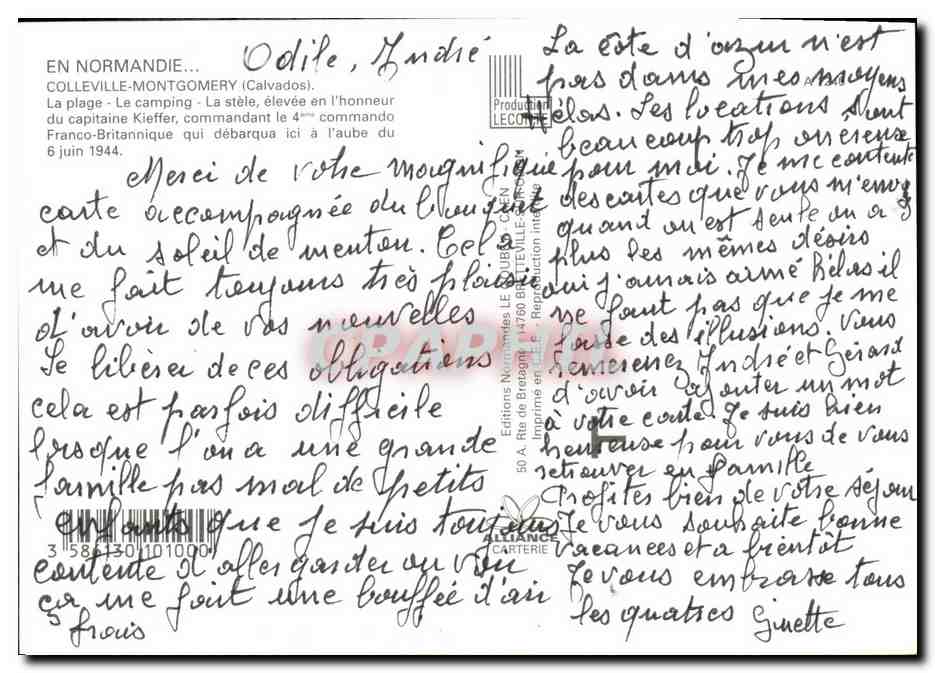 EN NORMANDIE...
COLLEVILLE-MONTGOMERY (Calvados).
La plage - Le camping - La stèle, élevée en l'honneur
du capitaine Kieffer, commandant le 4ème commando
Franco-Britannique qui débarqua ici à l'aube du
6 juin 1944.
Odile, André
Merci de votre magnifique
carte accompagnée du bouquet
et du soleil de menton. Cela
me fait toujours très plaisir
d'avoir de vos nouvelles
Se libérer de ces obligations
cela est parfois difficile
lorsque l'on a une grande
famille pas mal de petits
enfants que je suis toujours
contente d'aller garder ou voir
ça me fait une bouffée d'air
frais
La côte d'azur n'est
pas dans mes moyens
Hélas. Les locations sont
beaucoup trop onéreuse
pour moi. Je me contente
des cartes que vous m'envoyez
quand on est seule on a
plus les mêmes désirs
oui j'aurais aimé Hélas il
ne faut pas que je me
fasse des illusions. Vous
remercierez André et Gérard
d'avoir rajouter un mot
à votre carte. Je suis bien
heureuse pour vous de vous
retrouver en famille
Profites bien de votre séjour
Je vous souhaite bonne
vacances et a bientôt
Je vous embrasse tous
les quatres Ginette
Production
LECONTE
Editions Normandes LE GOUBEY - CAEN
50 A. Rte de Bretagne - 14760 BRETTEVILLE-SUR-ODON
Imprimé en C.E.E. Reproduction interdite
ALLIANCE
CARTERIE
3 586130 101000